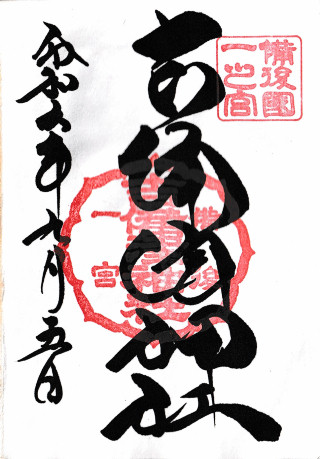 備後國
一之宮
吉備津神社
備後
吉備津神社
一宮
令和六年九月五日